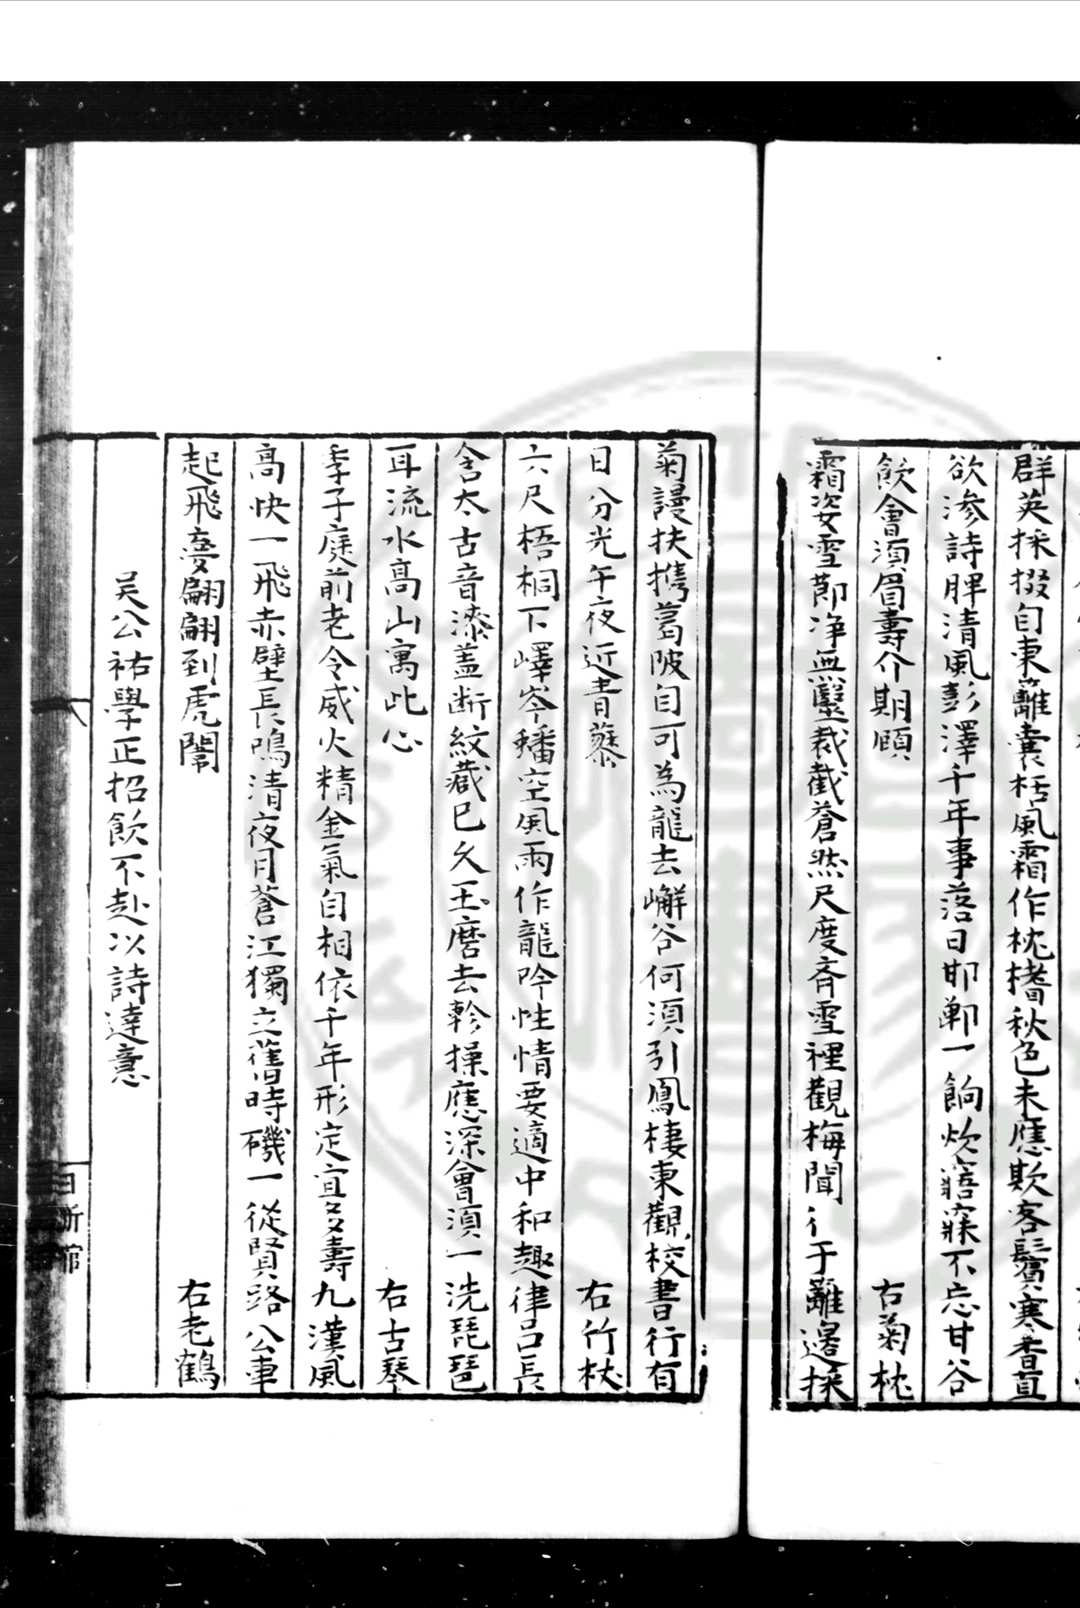 群英採掇自東籬囊栝風霜作枕楮秋色未應欺客鬢寒香直
欲滲詩脾清風彭澤千年事落日邯鄲一餉炊寤寐不忘甘谷
飲會須眉壽介期頤 右菊枕
霜姿雪節淨無瑕裁截蒼然尺度斉雪裡觀梅聞彳亍籬邊採
菊謾扶攜葛陂自可為龍去嶰谷何須引鳳棲東觀校書行有
日分光午夜近青藜 右竹杖
六尺梧桐下嶧岑蟠空風雨作龍吟性情要適中和趣律呂長
含太古音漆蓋断紋藏已久玉磨去軫操應深會須一洗琵琶
耳流水高山寓此心 右古琴
季子庭前老令威火精金氣自相依千年形定宜多壽九漢風
高快一飛赤壁長鳴清夜月蒼江獨立舊時磯一從賢路公車
起飛夢翩翩到虎闈 右老鶴
吴公祐學正招飲不赴以詩達意
日新館